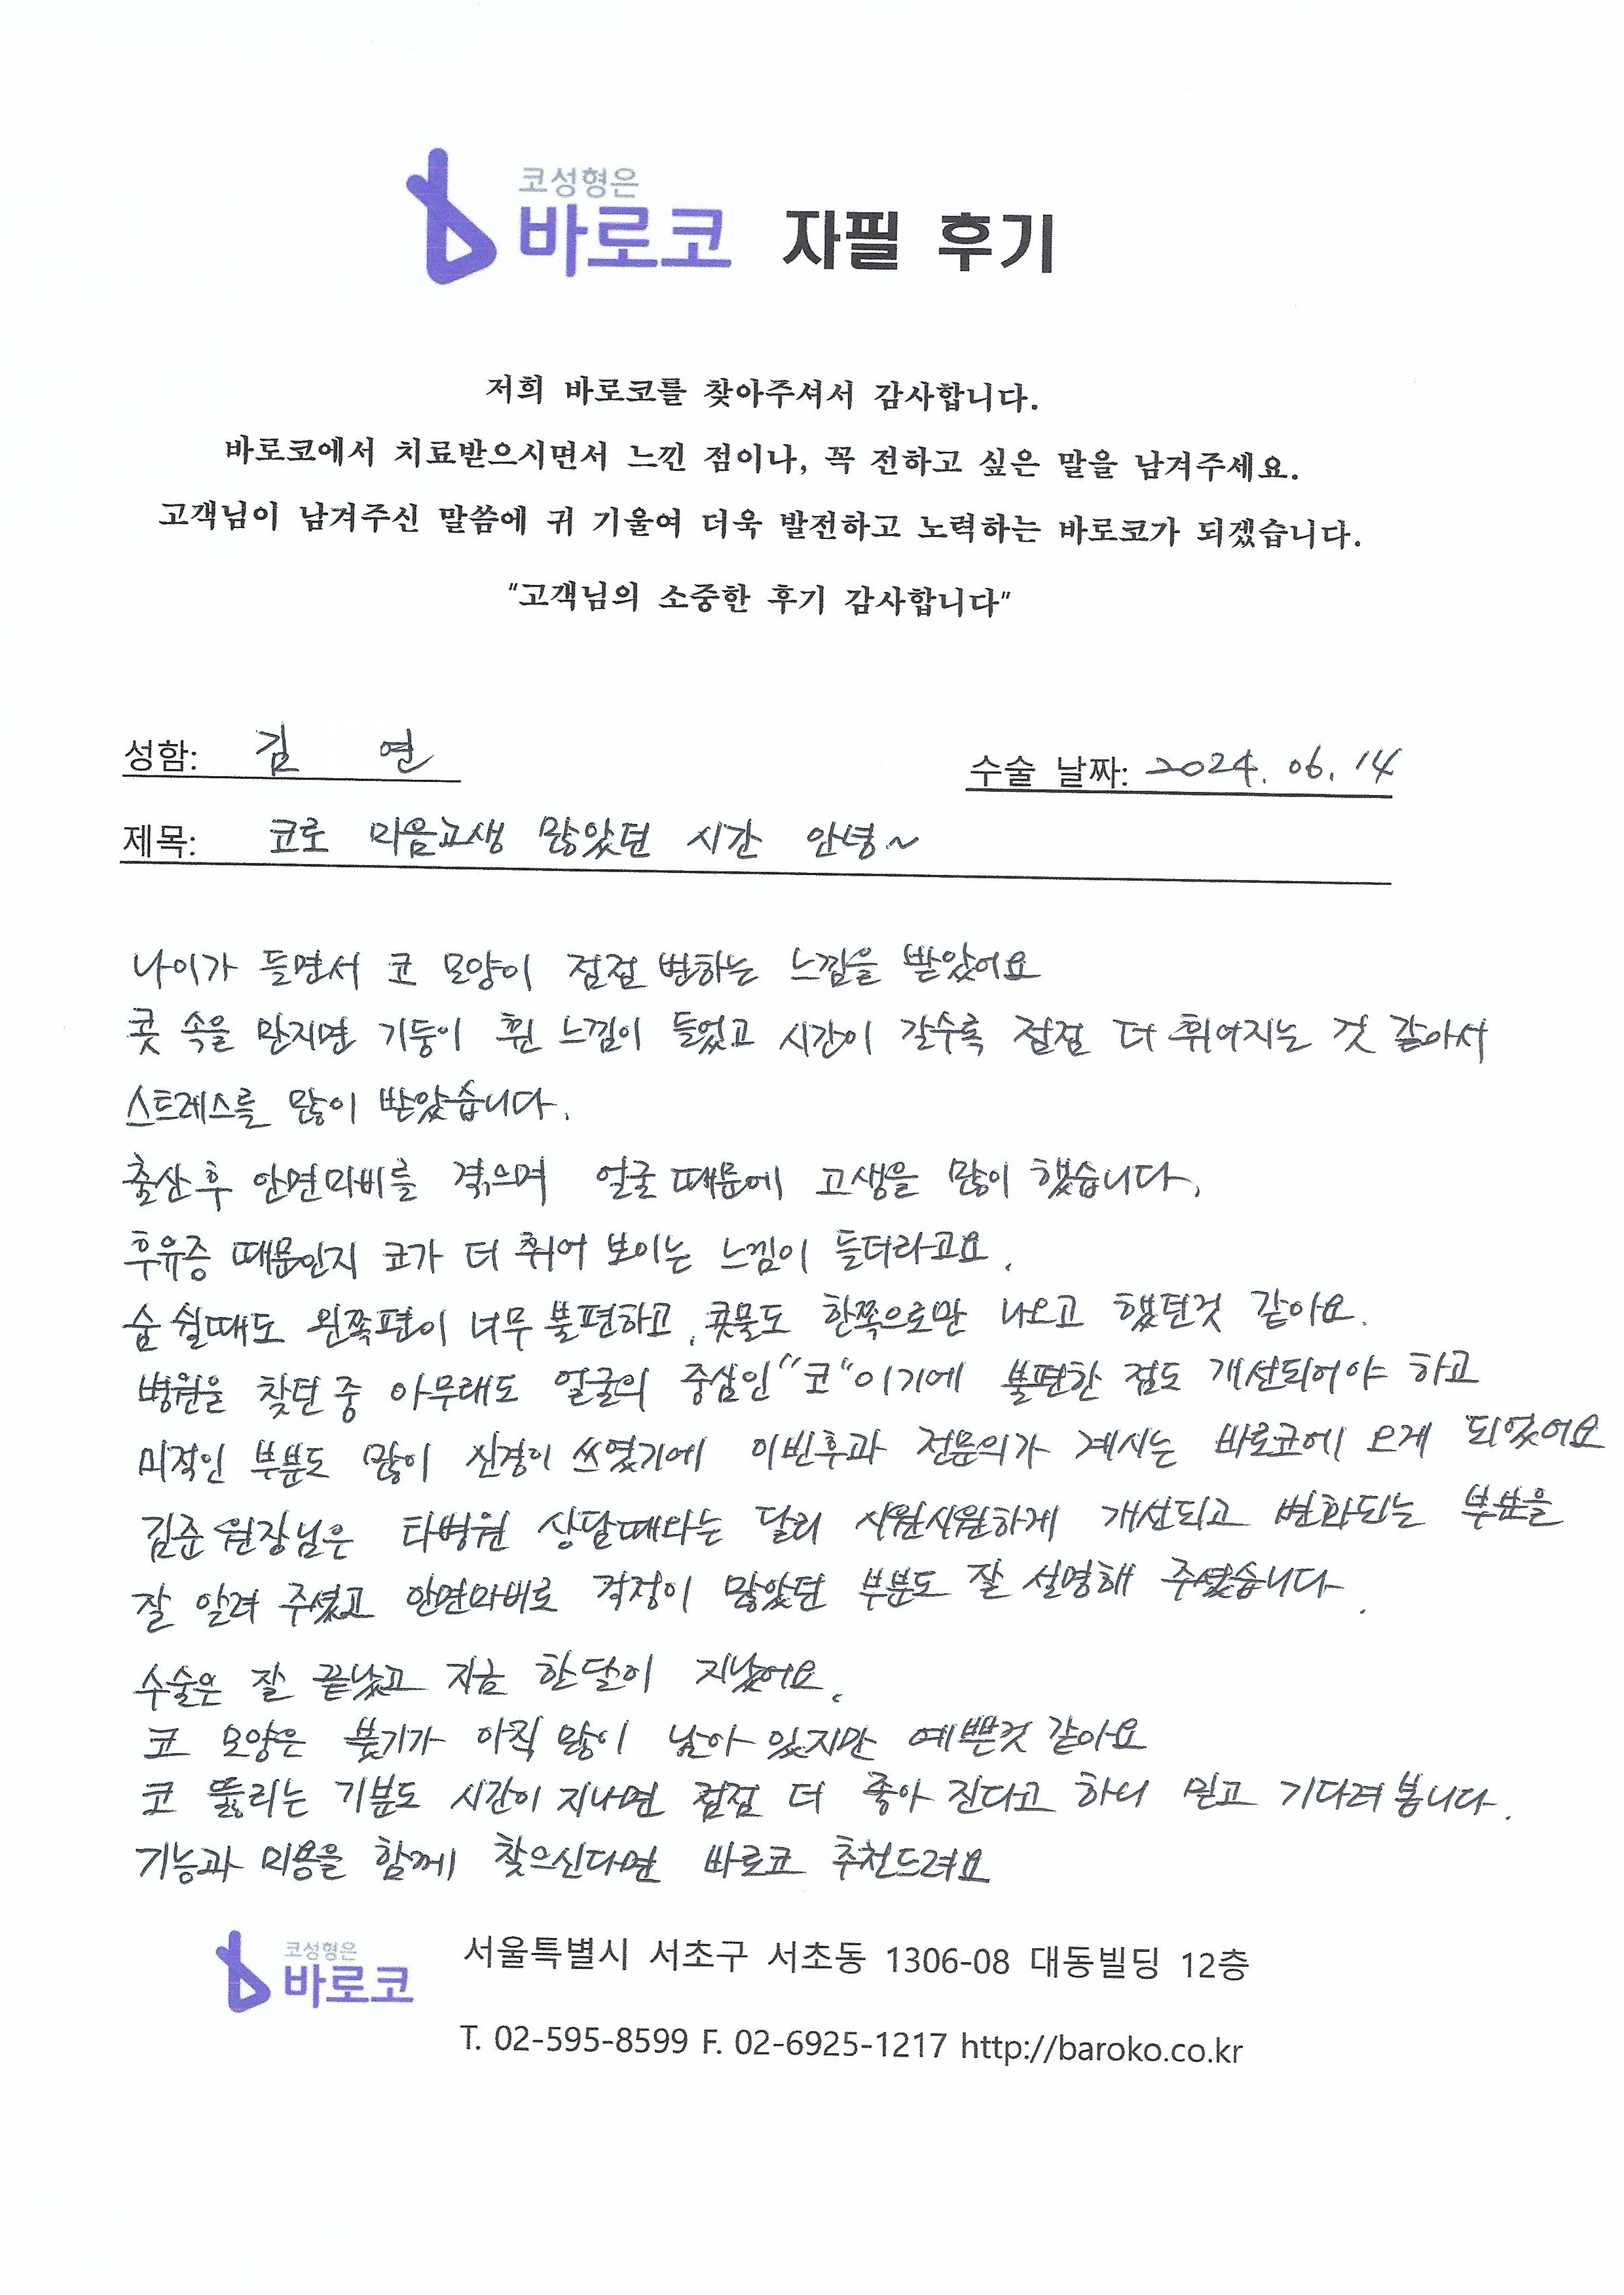 코성형은
바로코 자필 후기
저희 바로코를 찾아주셔서 감사합니다.
바로코에서 치료받으시면서 느낀 점이나, 꼭 전하고 싶은 말을 남겨주세요.
고객님이 남겨주신 말씀에 귀 기울여 더욱 발전하고 노력하는 바로코가 되겠습니다.
"고객님의 소중한 후기 감사합니다"
성함: 김 연 수술 날짜: 2024. 06. 14
제목: 코로 마음고생 많았던 시간 안녕~
나이가 들면서 코 모양이 점점 변하는 느낌을 받았어요
콧 속을 만지면 기둥이 휜 느낌이 들었고 시간이 갈수록 점점 더 휘어지는 것 같아서
스트레스를 많이 받았습니다.
출산 후 안면마비를 겪으며 얼굴 때문에 고생을 많이 했습니다.
후유증 때문인지 코가 더 휘어 보이는 느낌이 들더라고요.
숨 쉴때도 왼쪽편이 너무 불편하고, 콧물도 한쪽으로만 나오고 했던것 같아요.
병원을 찾던 중 아무래도 얼굴의 중심인 "코" 이기에 불편한 점도 개선되어야 하고
미적인 부분도 많이 신경이 쓰였기에 이빈후과 전문의가 계시는 바로코에 오게 되었어요
김준 원장님은 타병원 상담때와는 달리 시원시원하게 개선되고 변화되는 부분을
잘 알려 주셨고 안면마비로 걱정이 많았던 부분도 잘 설명해 주셨습니다.
수술은 잘 끝났고 지금 한달이 지났어요.
코 모양은 붓기가 아직 많이 남아 있지만 예쁜것 같아요
코 뚫리는 기분도 시간이 지나면 점점 더 좋아 진다고 하니 믿고 기다려 봅니다.
기능과 미용을 함께 찾으신다면 바로코 추천드려요
코성형은
바로코
서울특별시 서초구 서초동 1306-08 대동빌딩 12층
T. 02-595-8599 F. 02-6925-1217 http://baroko.co.kr